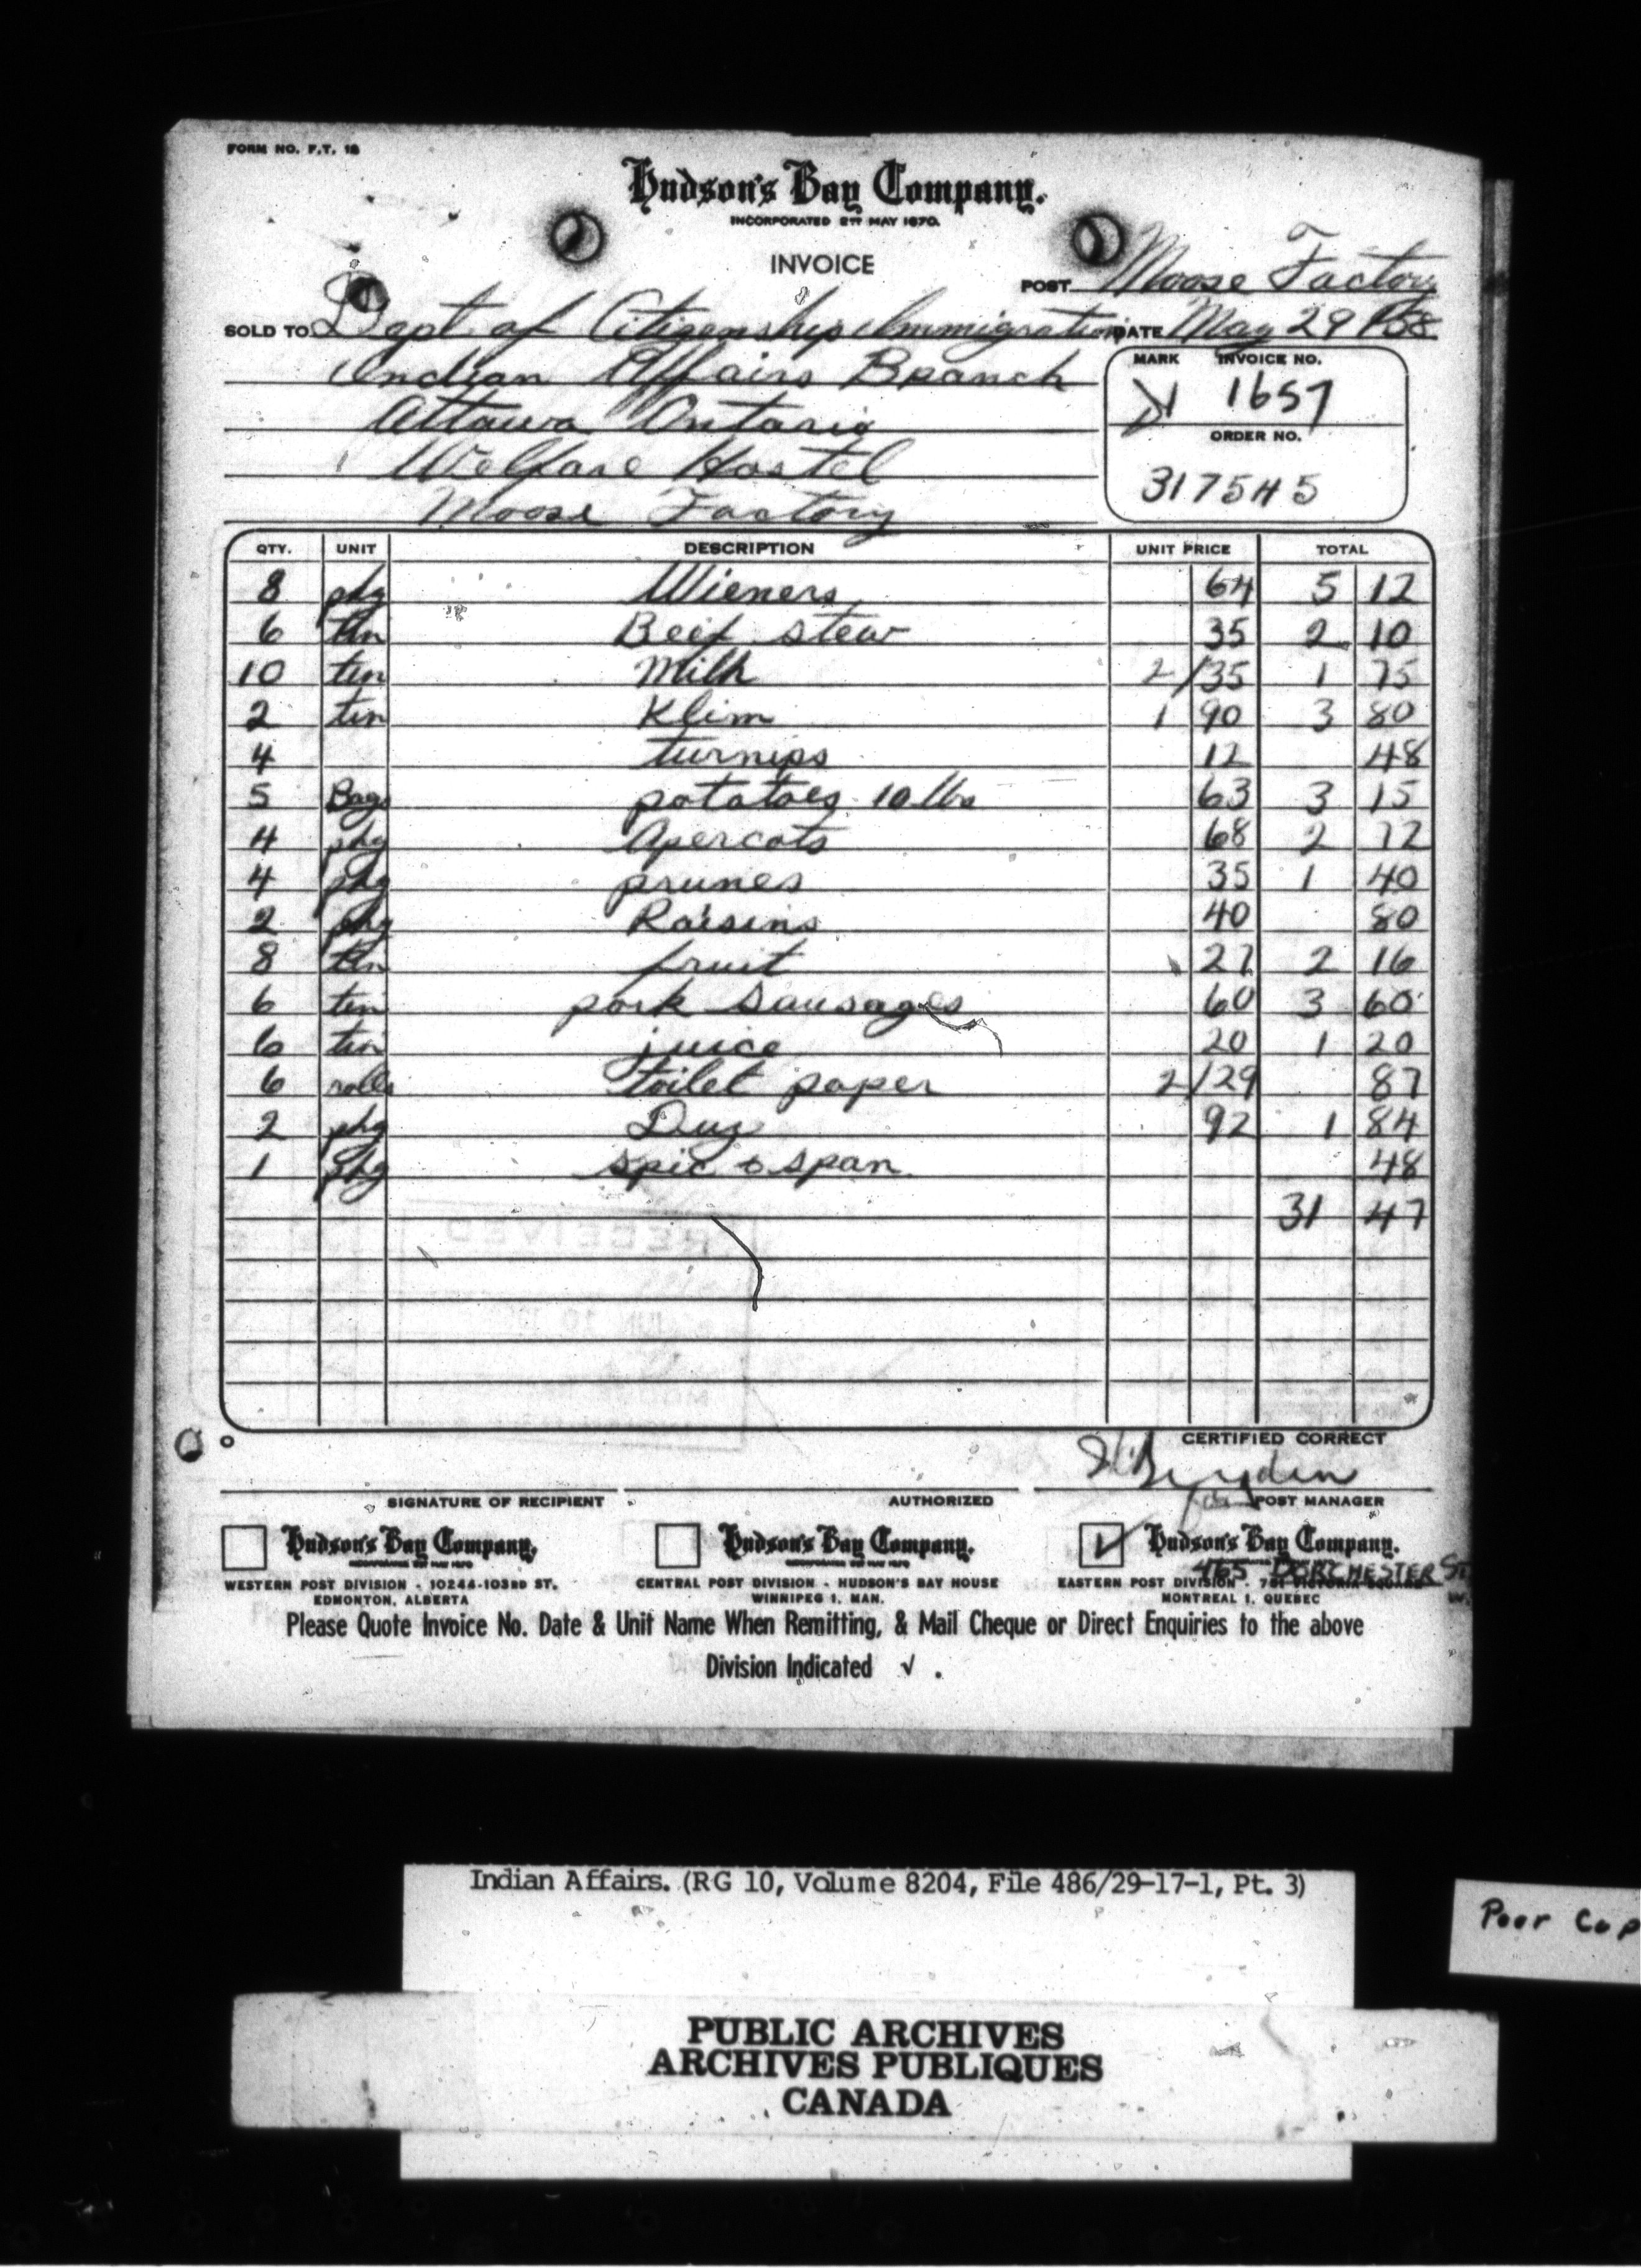 FORM NO. F.T. 18
Hudson's Bay Company.
INCORPORATED 2ND MAY 1670.
INVOICE
POST Moose Factory
SOLD TO Dept of Citizenship Immigration DATE May 29 1958
Indian Affairs Branch
Ottawa Ontario
Welfare Hostel
Moose Factory
MARK INVOICE NO.
1657
ORDER NO.
317545
QTY. UNIT DESCRIPTION UNIT PRICE TOTAL
8 pkg Wieners 64 5 12
6 tin Beef stew 35 2 10
10 tin Milk 2/35 1 75
2 tin Klim 1 90 3 80
4 turnips 12 48
5 Bags potatoes 10 lbs 63 3 15
4 pkg Apercots 68 2 72
4 pkg prunes 35 1 40
2 pkg Raisins 40 80
8 tin fruit 27 2 16
6 tin pork sausages 60 3 60
6 tin juice 20 1 20
6 rolls toilet paper 2/29 87
2 pkg Duz 92 1 84
1 pkg spic & span 48
31 47
RECEIVED
CERTIFIED CORRECT
SIGNATURE OF RECIPIENT AUTHORIZED for POST MANAGER
Hudson's Bay Company. Hudson's Bay Company. Hudson's Bay Company.
INCORPORATED 2ND MAY 1670 INCORPORATED 2ND MAY 1670
465 DORCHESTER St. W.
WESTERN POST DIVISION - 10244-103RD ST. CENTRAL POST DIVISION - HUDSON'S BAY HOUSE EASTERN POST DIVISION - 751 VICTORIA SQUARE
EDMONTON, ALBERTA WINNIPEG 1, MAN. MONTREAL 1, QUEBEC
Please Quote Invoice No. Date & Unit Name When Remitting, & Mail Cheque or Direct Enquiries to the above
Division Indicated √ .
Indian Affairs. (RG 10, Volume 8204, File 486/29-17-1, Pt. 3)
Poor Cop
PUBLIC ARCHIVES
ARCHIVES PUBLIQUES
CANADA